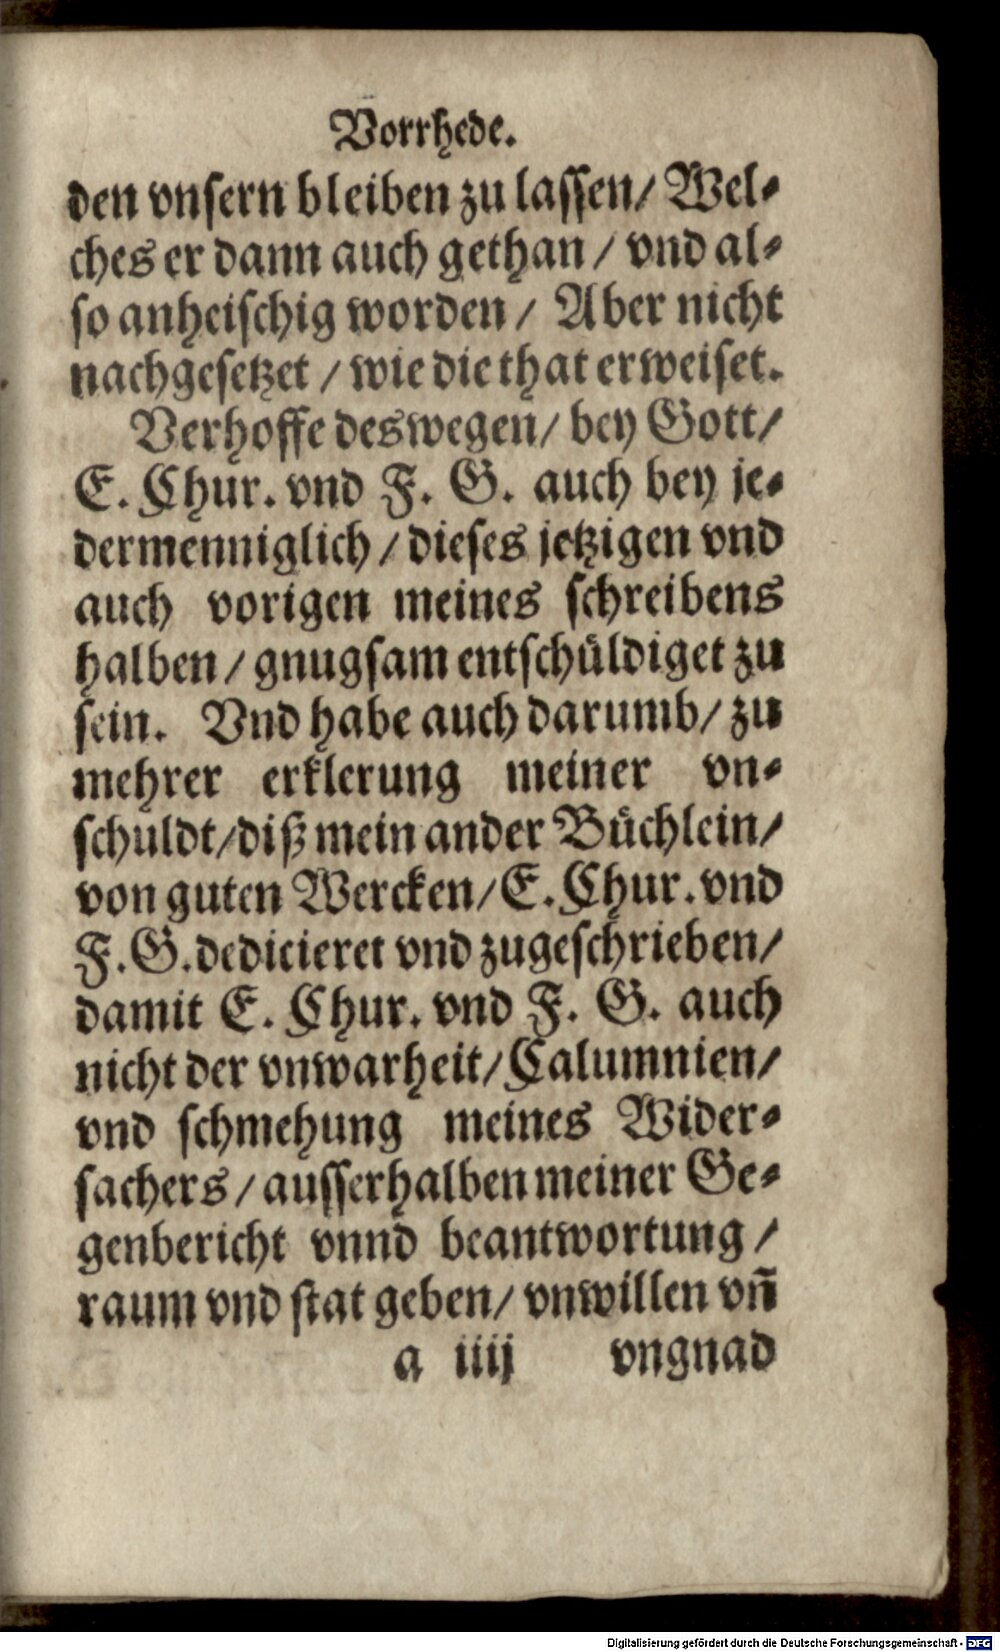 Vorrhede.
den vnsern bleiben zu lassen/ Wel-
ches er dann auch gethan / vnd al-
so anheischig worden / Aber nicht
nachgesetzet / wie die that erweiset.
Verhoffe deswegen/ bey Gott/
E. Chur. vnd F. G. auch bey je-
dermenniglich / dieses jetzigen vnd
auch vorigen meines schreibens
halben / gnugsam entschüldiget zu
sein. Vnd habe auch darumb/ zu
mehrer erklerung meiner vn-
schuldt/diß mein ander Büchlein/
von guten Wercken/E. Chur. vnd
F.G.dedicieret vnd zugeschrieben/
damit E. Chur. vnd F. G. auch
nicht der vnwarheit/Calumnien/
vnd schmehung meines Wider-
sachers / ausserhalben meiner Ge-
genbericht vnnd beantwortung /
raum vnd stat geben/ vnwillen vn̄
a iiij vngnad
Digitalisierung gefördert durch die Deutsche Forschungsgemeinschaft - DFG